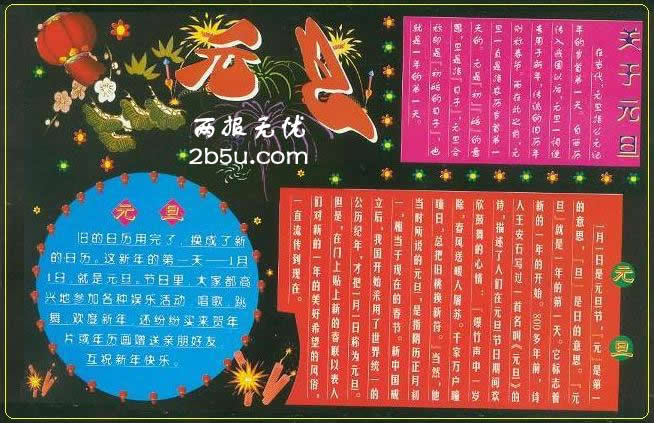 元旦
两报无优
2b5u.com
关于元旦
在当代，元旦指公元纪
年的岁首第一天。自西历
传入我国以后，元旦一词便
专用于新年，传统的旧历年
则称春节。而在此之前，元
旦一直是指农历岁首第一
天的。元是“初”、“始”的意
思，旦是指“日子”，元旦合
称即是“初始的日子”，也
就是一年的第一天。
元旦
旧的日历用完了，换成了新
的日历。这新年的第一天——1月
1日，就是元旦。节日里，大家都高
兴地参加各种娱乐活动，唱歌、跳
舞，欢度新年，还纷纷买来贺年
片或年历画赠送亲朋好友，
互祝新年快乐。
元旦
1月1日是元旦节，“元”是第一
的意思，“旦”是日的意思。“元
旦”就是一年的第一天。它标志着
新的一年的开始。800多年前，诗
人王安石写过一首名叫《元旦》的
诗，描述了人们在元旦节日期间欢
欣鼓舞的心情：“爆竹声中一岁
除，春风送暖入屠苏。千家万户曈
曈日，总把旧桃换新符。”当然，他
当时所说的元旦，是指阴历正月初
一，相当于现在的春节。新中国成
立后，我国开始采用了世界统一的
公历纪年，才把一月一日称为元旦。
但是，在门上贴上新的春联以表人
们对新的一年的美好希望的风俗，
一直流传到现在。